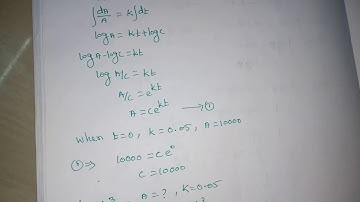 ∫ dA/A = k∫dt
log A = kt + log C
log A - log C = kt
log A/C = kt
A/C = e^kt
A = Ce^kt → ①
when t=0, k=0.05, A=10000
① ⇒ 10000 = Ce^0
C = 10000
A = ?, k=0.05